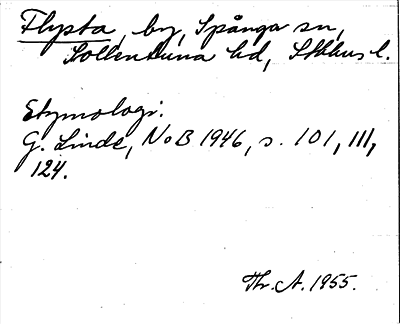 Flysta, by, Spånga sn,
Sollentuna hd, Sthlms l.
Etymologi.
G. Linde, NoB 1946, s. 101, 111,
124.
Th. A. 1955.